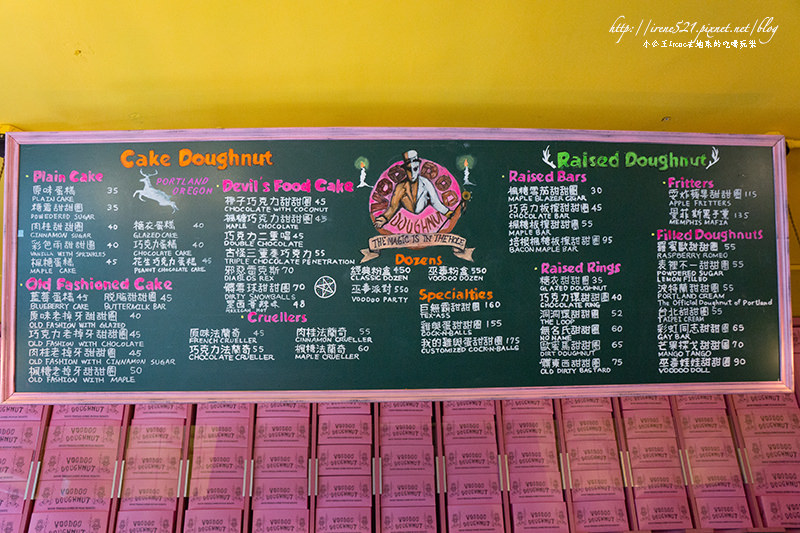 http://irene521.pixnet.net/blog
Cake Doughnut
Plain Cake
原味蛋糕 35
PLAIN CAKE
糖霜甜甜圈 35
POWDERED SUGAR
肉桂甜甜圈 40
CINNAMON SUGAR
彩色雨甜甜圈 40
VANILLA WITH SPRINKLES
楓糖蛋糕 45
MAPLE CAKE
PORTLAND
OREGON
糖衣蛋糕 40
GLAZED CAKE
巧克力蛋糕 40
CHOCOLATE CAKE
花生巧克力蛋糕 45
PEANUT CHOCOLATE CAKE
Old Fashioned Cake
藍莓蛋糕 45
BLUEBERRY CAKE
脫脂甜甜圈 45
BUTTERMILK BAR
原味老掉牙甜甜圈 40
OLD FASHION WITH GLAZED
巧克力老掉牙甜甜圈 45
OLD FASHION WITH CHOCOLATE
肉桂老掉牙甜甜圈 45
OLD FASHION WITH CINNAMON SUGAR
楓糖老掉牙甜甜圈 50
OLD FASHION WITH MAPLE
Devil's Food Cake
椰子巧克力甜甜圈 45
CHOCOLATE WITH COCONUT
楓糖巧克力甜甜圈 45
MAPLE CHOCOLATE
巧克力二重唱 45
DOUBLE CHOCOLATE
古怪三重奏巧克力 55
TRIPLE CHOCOLATE PENETRATION
邪惡雷克斯 70
DIABLOS REX
髒雪球甜甜圈 70
DIRTY SNOWBALLS
48
Cruellers
原味法蘭奇 45
FRENCH CRUELLER
巧克力法蘭奇 55
CHOCOLATE CRUELLER
肉桂法蘭奇 55
CINNAMON CRUELLER
楓糖法蘭奇 60
MAPLE CRUELLER
VOODOO
DOUGHNUT
THE MAGIC IS IN THE HOLE
Dozens
經典粉盒 450
CLASSIC DOZEN
巫毒粉盒 550
VOODOO DOZEN
巫毒派對 550
VOODOO PARTY
Specialties
巨無霸甜甜圈 160
TEXAS
雞與蛋甜甜圈 155
COCK-N-BALLS
我的雞與蛋甜甜圈 175
CUSTOMIZED COCK-N-BALLS
Raised Doughnut
Raised Bars
楓糖雪茄甜甜圈 30
MAPLE BLAZER CIGAR
巧克力板擦甜甜圈 45
CHOCOLATE BAR
楓糖板擦甜甜圈 55
MAPLE BAR
培根楓糖板擦甜甜圈 95
BACON MAPLE BAR
Raised Rings
糖衣甜甜圈 35
GLAZED DOUGHNUT
巧克力環甜甜圈 40
CHOCOLATE RING
洞洞環甜甜圈 50
THE LOOP
無名氏甜甜圈 60
NO NAME
歐蜜馬甜甜圈 65
DIRT DOUGHNUT
髒東西甜甜圈 75
OLD DIRTY BASTARD
Fritters
炸蘋果甜甜圈 115
APPLE FRITTERS
孟菲斯黑手黨 135
MEMPHIS MAFIA
Filled Doughnuts
羅蜜歐甜甜圈 55
RASPBERRY ROMEO
表裡不一甜甜圈 55
POWDERED SUGAR
LEMON FILLED
波特蘭甜甜圈 55
PORTLAND CREAM
The Official Doughnut of Portland
台北甜甜圈 55
TAIPEI CREAM
彩虹同志甜甜圈 65
GAY BAR
芒果探戈甜甜圈 70
MANGO TANGO
巫毒娃娃甜甜圈 90
VOODOO DOLL
VOODOO
DOUGHNUT